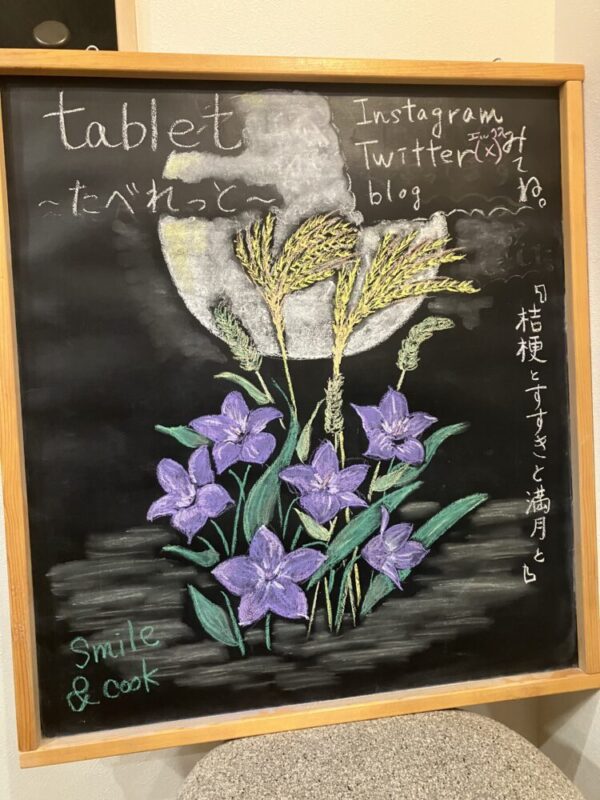 tablet
~たべれっと~
Instagram
Twitter(X)
blog
みてね。
『桔梗とすすきと満月と』
Smile
& cook